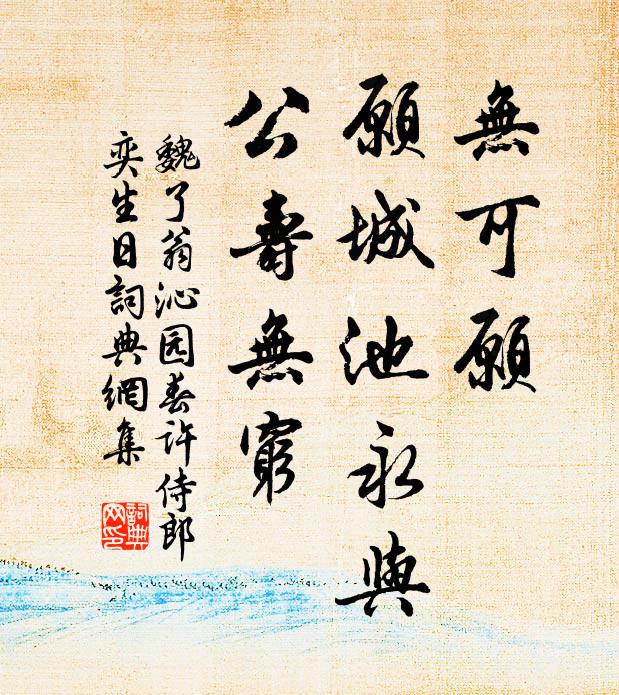 無可願
願城池永與
公壽無窮
魏了翁沁园春许侍郎
奕生日詞典網集
詞典
网印